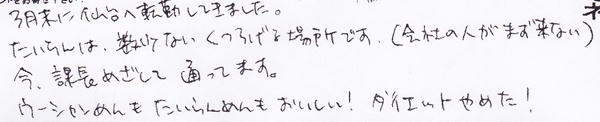 3月末に仙台へ転勤してきました。
たいらんは、数少ないくつろげる場所です。(会社の人がまず来ない)
今、課長めざして通ってます。
ウーシャンめんもたいらんめんもおいしい！ダイエットやめた！